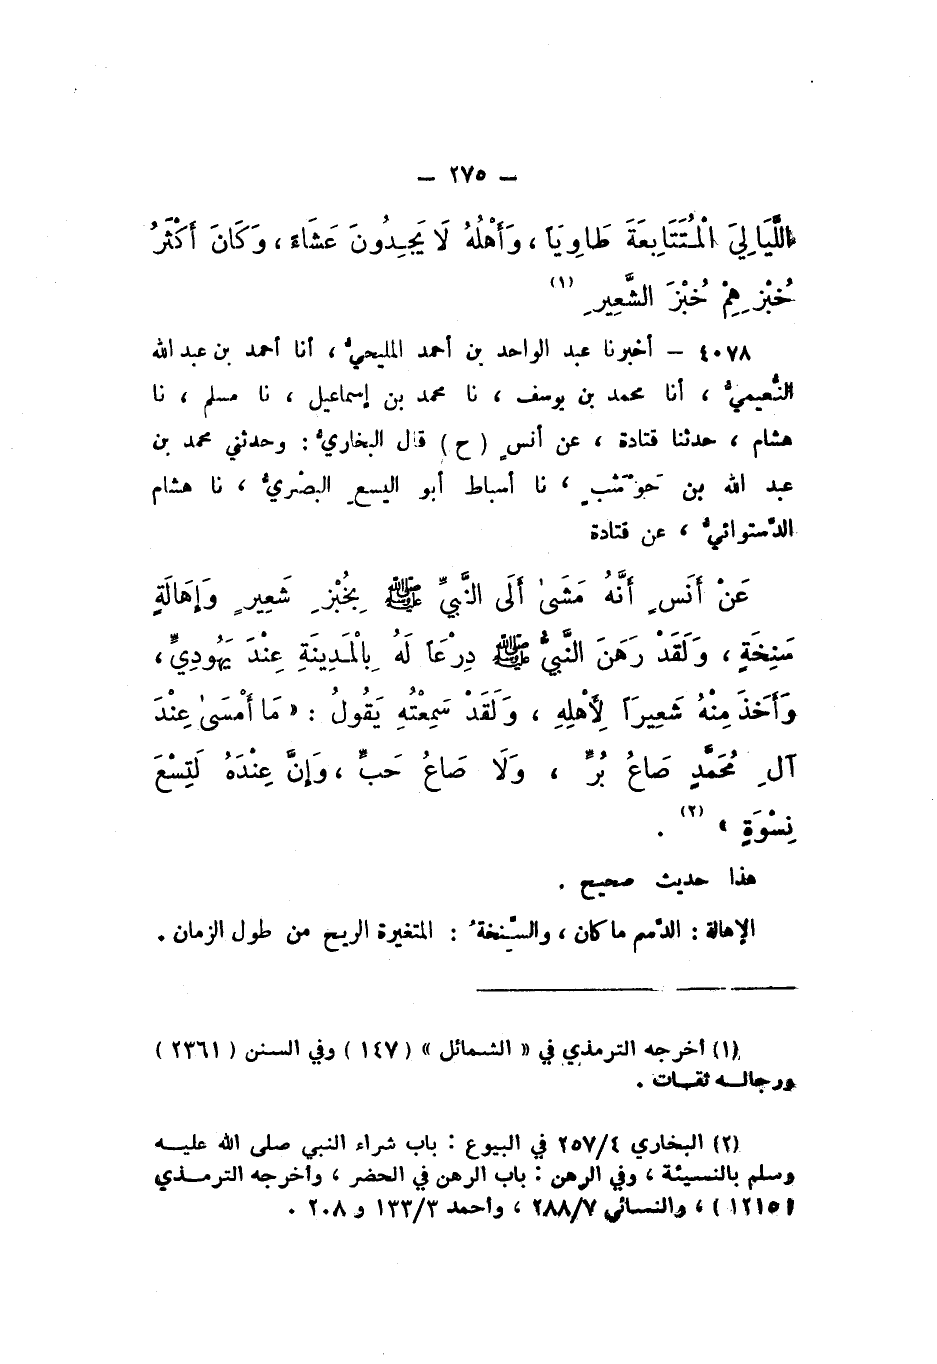 – ٢٧٥ –
اللَّيَالِيَ الْمُتَتَابِعَةَ طَاوِيَاً ، وَأَهْلُهُ لَا يَجِدُونَ عَشَاءً ، وَكَانَ أَكْثَرُ
خُبْزِهِمْ خُبْزَ الشَّعِيرِ (١)
٤٠٧٨ – أخبرنا عبد الواحد بن أحمد المليحيُّ ، أنا أحمد بن عبد الله
النُّعيميُّ ، أنا محمد بن يوسف ، نا محمد بن إسماعيل ، نا مسلم ، نا
هشام ، حدثنا قتادة ، عن أنسٍ ( ح ) قال البخاريُّ : وحدثني محمد بن
عبد الله بن حَوْشَبٍ ، نا أسباط أبو اليسعِ البصْريُّ ، نا هشام
الدَّستوائيُّ ، عن قتادة
عَنْ أَنَسٍ أَنَّهُ مَشَىٰ أَلَى النَّبِيِّ ﷺ بِخُبْزِ شَعِيرٍ وَإِهَالَةٍ
سَنِخَةٍ ، وَلَقَدْ رَهَنَ النَّبِيُّ ﷺ دِرْعَاً لَهُ بِالْمَدِينَةِ عِنْدَ يَهُودِيٍّ ،
وَأَخَذَ مِنْهُ شَعِيرَاً لِأَهْلِهِ ، وَلَقَدْ سَمِعْتُهِ يَقُولُ : « مَا أَمْسَىٰ عِنْدَ
آلِ مُحَمَّدٍ صَاعُ بُرٍّ ، وَلَا صَاعُ حَبٍّ ، وَإِنَّ عِنْدَهُ لَتِسْعَ
نِسْوَةٍ » (٢) .
هذا حديث صحيح .
الإهالة : الدَّسم ما كان ، والسَّنِخةُ : المتغيرة الريح من طول الزمان .
(١) أخرجه الترمذي في « الشمائل » ( ١٤٧ ) وفي السنن ( ٢٣٦١ )
ورجاله ثقات .
(٢) البخاري ٢٥٧/٤ في البيوع : باب شراء النبي صلى الله عليه
وسلم بالنسيئة ، وفي الرهن : باب الرهن في الحضر ، وأخرجه الترمذي
( ١٢١٥ ) ، والنسائي ٢٨٨/٧ ، وأحمد ١٣٣/٣ و ٢٠٨ .